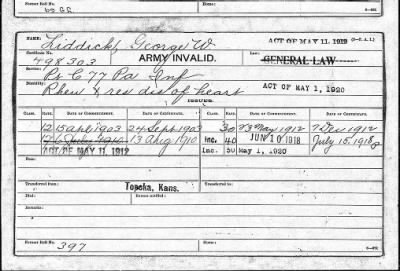 Former Roll No.
by G.S.
NAME: Liddick, George W.
ACT OF MAY 11, 1912
Certificate No.
498303
ARMY INVALID.
Law:
GENERAL LAW
Service: Co C 77 Pa Inf
ACT OF MAY 1, 1920
Rheu & res dis of heart
ISSUES.
CLASS. RATE. DATE OF COMMENCEMENT. DATE OF CERTIFICATE. CLASS. RATE. DATE OF COMMENCEMENT. DATE OF CERTIFICATE.
12 15 Apl 1903 24 Sept 1903 30 23 May 1912 7 Dec 1912
13 Aug 1910 Inc. 40 JUN 10 1918 July 15, 1918
ACT OF MAY 11, 1912 Inc. 50 May 1, 1920
Transferred from Topeka, Kans. Transferred to
Died:
Remarks:
Former Roll No. 397 Home: